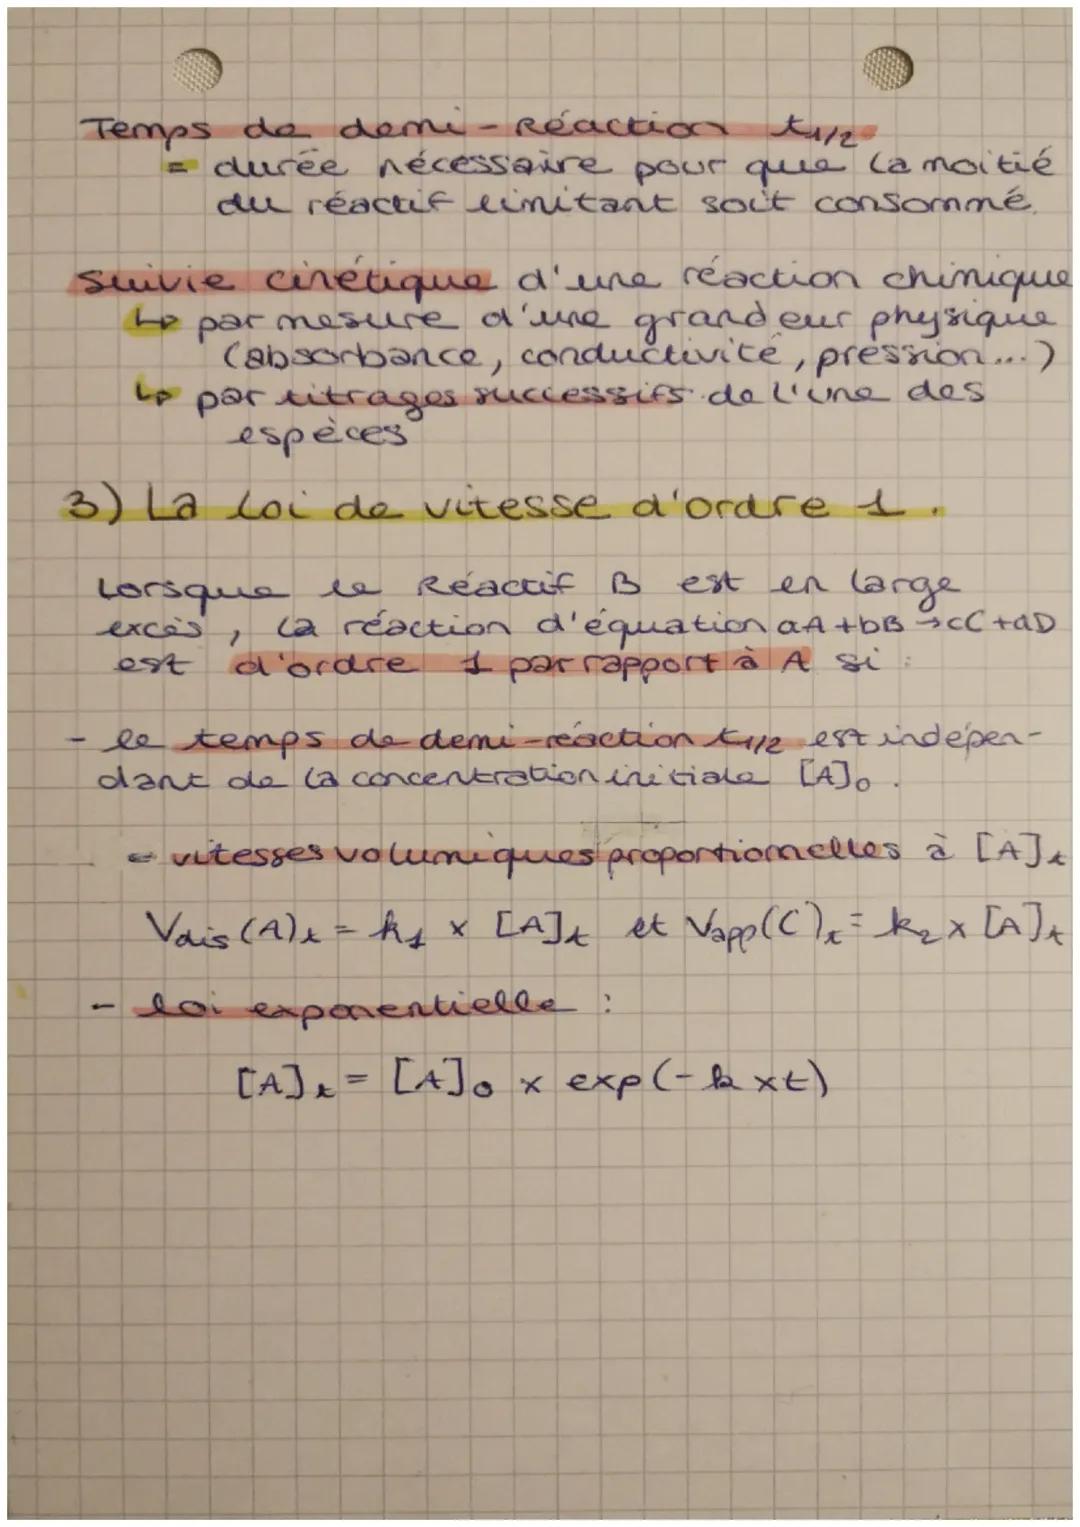 Temps de demi-Réaction t1/2
= durée nécessaire pour que la moitié
du réactif limitant soit consommé.
Suivie cinétique d'une réaction chimique
↳ par mesure d'une grandeur physique
(absorbance, conductivité, pression...)
↳ par titrages successifs de l'une des
espèces
3) La loi de vitesse d'ordre 1.
Lorsque le Réactif B est en large
excès, la réaction d'équation aA+bB→cC+dD
est d'ordre 1 par rapport à A si :
- le temps de demi-réaction t1/2 est indépen-
dant de la concentration initiale [A]0.
- vitesses volumiques proportionnelles à [A]t
Vdis(A)t = k1 × [A]t et Vapp(C)t = k2 × [A]t
- loi exponentielle :
[A]t = [A]0 × exp(-k×t)